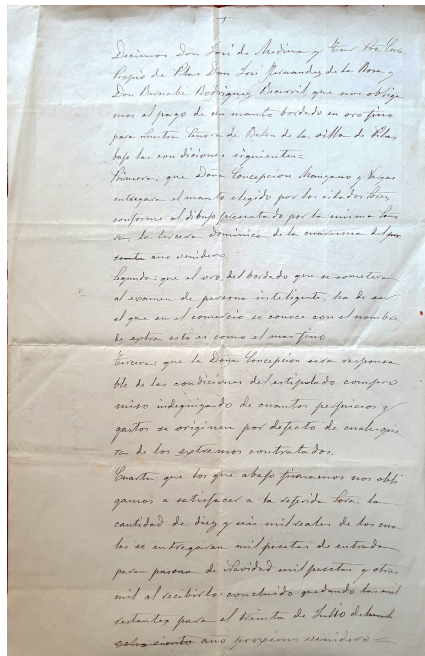 Decimos Don José de Medina y
Propio de Pilas Don José Hernandez de la Rosa y
Don Bernabe Rodriguez Becerril que nos oblига
mos al pago de un manto bordado en oro fino
para Nuestra Señora de Belen de la villa de Pilas
bajo las condiciones siguientes=
Primera: que Doña Concepcion Manzano y Vargas
entregara el manto elegido por los citados Sres,
conforme al dibujo presentado por la misma Seño
ra, la tercera Dominica de la cuaresma del
año venidero.
Segundo: que el oro del bordado que se sometera
al examen de persona inteligente, ha de ser
el que en el comercio se conoce con el nombre
de extra esto es como el mas fino
Tercera: que la Doña Concepcion sera responsa
ble de las condiciones del estipulado compro
miso indegnizando de cuantos perjuicios y
gastos se originen por defecto de cualesquie
ra de los extremos contratados.
Cuarta: que los que abajo firmaremos nos obli
gamos a satisfacer a la referida Sora. la
cantidad de diez y seis mil reales de los cua
les se entregaran mil pesetas de entrada
para pascua de Navidad mil pesetas y otras
mil al recibirlo concluido quedando las mil
restantes para el treinta de Julio de
ocho ciento año proximo venidero=